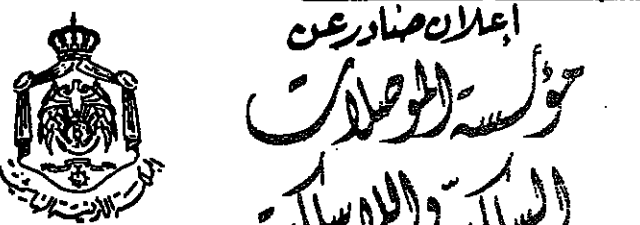 إعلان صادر عن
مؤسسة المواصلات
السلكية واللاسلكية
المملكة الأردنية الهاشمية